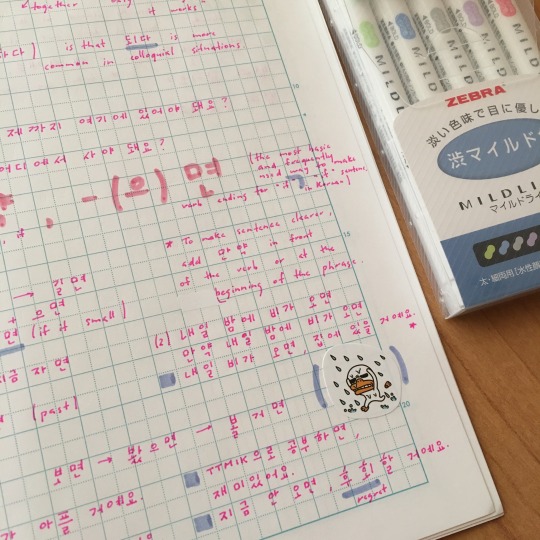 together    way    it works.
다 ]    is that 되다 is more
common in colloquial situations
제까지 여기에 있어야 돼요?
어디에서 사야 돼요?
-(으)면
(the most basic
and frequently
used way to make
verb ending for "if" in Korean)
"if" sentence
if
* To make sentence clearer,
add 만약 in front
of the verb or at the
beginning of the phrase.
→ 길면
+ 으면
면 (if it small)
자면
(2) 내일 밤에 비가 오면
만약 내일 밤에 비가 오면
내일 비가 오면, 집에 있을 거예요.*
(past)
보면 → 봤으면 → 볼 거면
TTMIK으로 공부하면,
재미있어요.
지금 안 오면, 후회할 거예요.
regret
가 아플 거예요.
10
15
20
ZEBRA
淡い色味で目に優し
渋マイルド
MILDLI
マイルドライ
MILDL
MILDL
MILDL
MILDL
MILDL